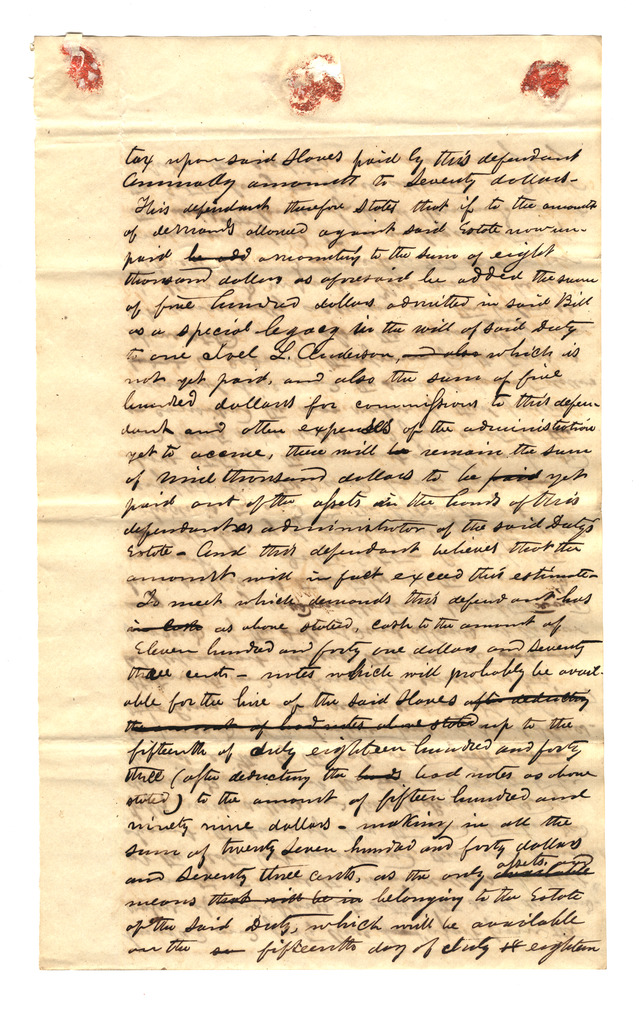 tax upon said slaves paid by this defendant
Annually amount to Seventy dollars-
This defendant therefore states that if to the amount
of demands allowed against said Estate now un-
paid be add amounting to the sum of eight
thousand dollars as aforesaid be added the sum
of five hundred dollars admitted in said Bill
as a special legacy in the will of said Duty
to one Joel L. Anderson, and also which is
not yet paid, and also the sum of five
hundred dollars for commissions to this defen
dant and other expenses of the administration
yet to accrue, there will be remain the sum
of nine thousand dollars to be paid yet
paid out of the assets in the hands of this
defendant as administrator of the said Duty's
Estate - And this defendant believes that the
amount will in fact exceed this estimate-
To meet which demands this defendant has
in cash as above stated, cash to the amount of
Eleven hundred and forty one dollars and seventy
three cents - notes which will probably be avail-
able for the hire of the said slaves after deducting
the amount of bad notes above stated up to the
fifteenth of July eighteen hundred and forty
three (after deducting the bad notes as above
stated) to the amount of fifteen hundred and
ninety nine dollars - making in all the
sum of twenty seven hundred and forty dollars
and seventy three cents, as the only available assets, and
means that will be in belonging to the Estate
of the said Duty, which will be available
on the fifteenth day of July 18 eighteen